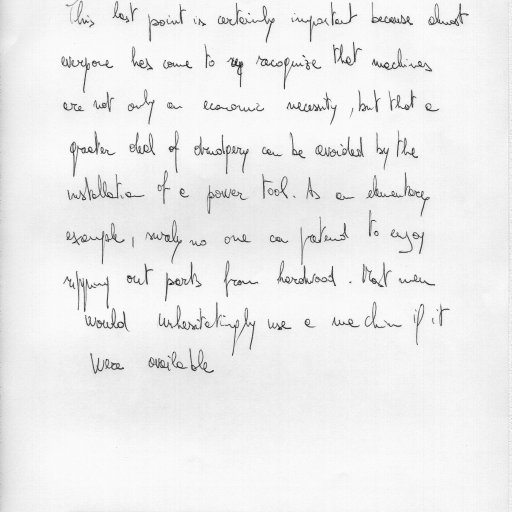 This last point is certainly important because almost
everyone has come to recognize that machines
are not only an economic necessity, but that a
greater deal of drudgery can be avoided by the
installation of a power tool. As an elementary
example, surely no one can pretend to enjoy
ripping out parts from hardwood. Most men
would unhesitatingly use a machin if it
were available